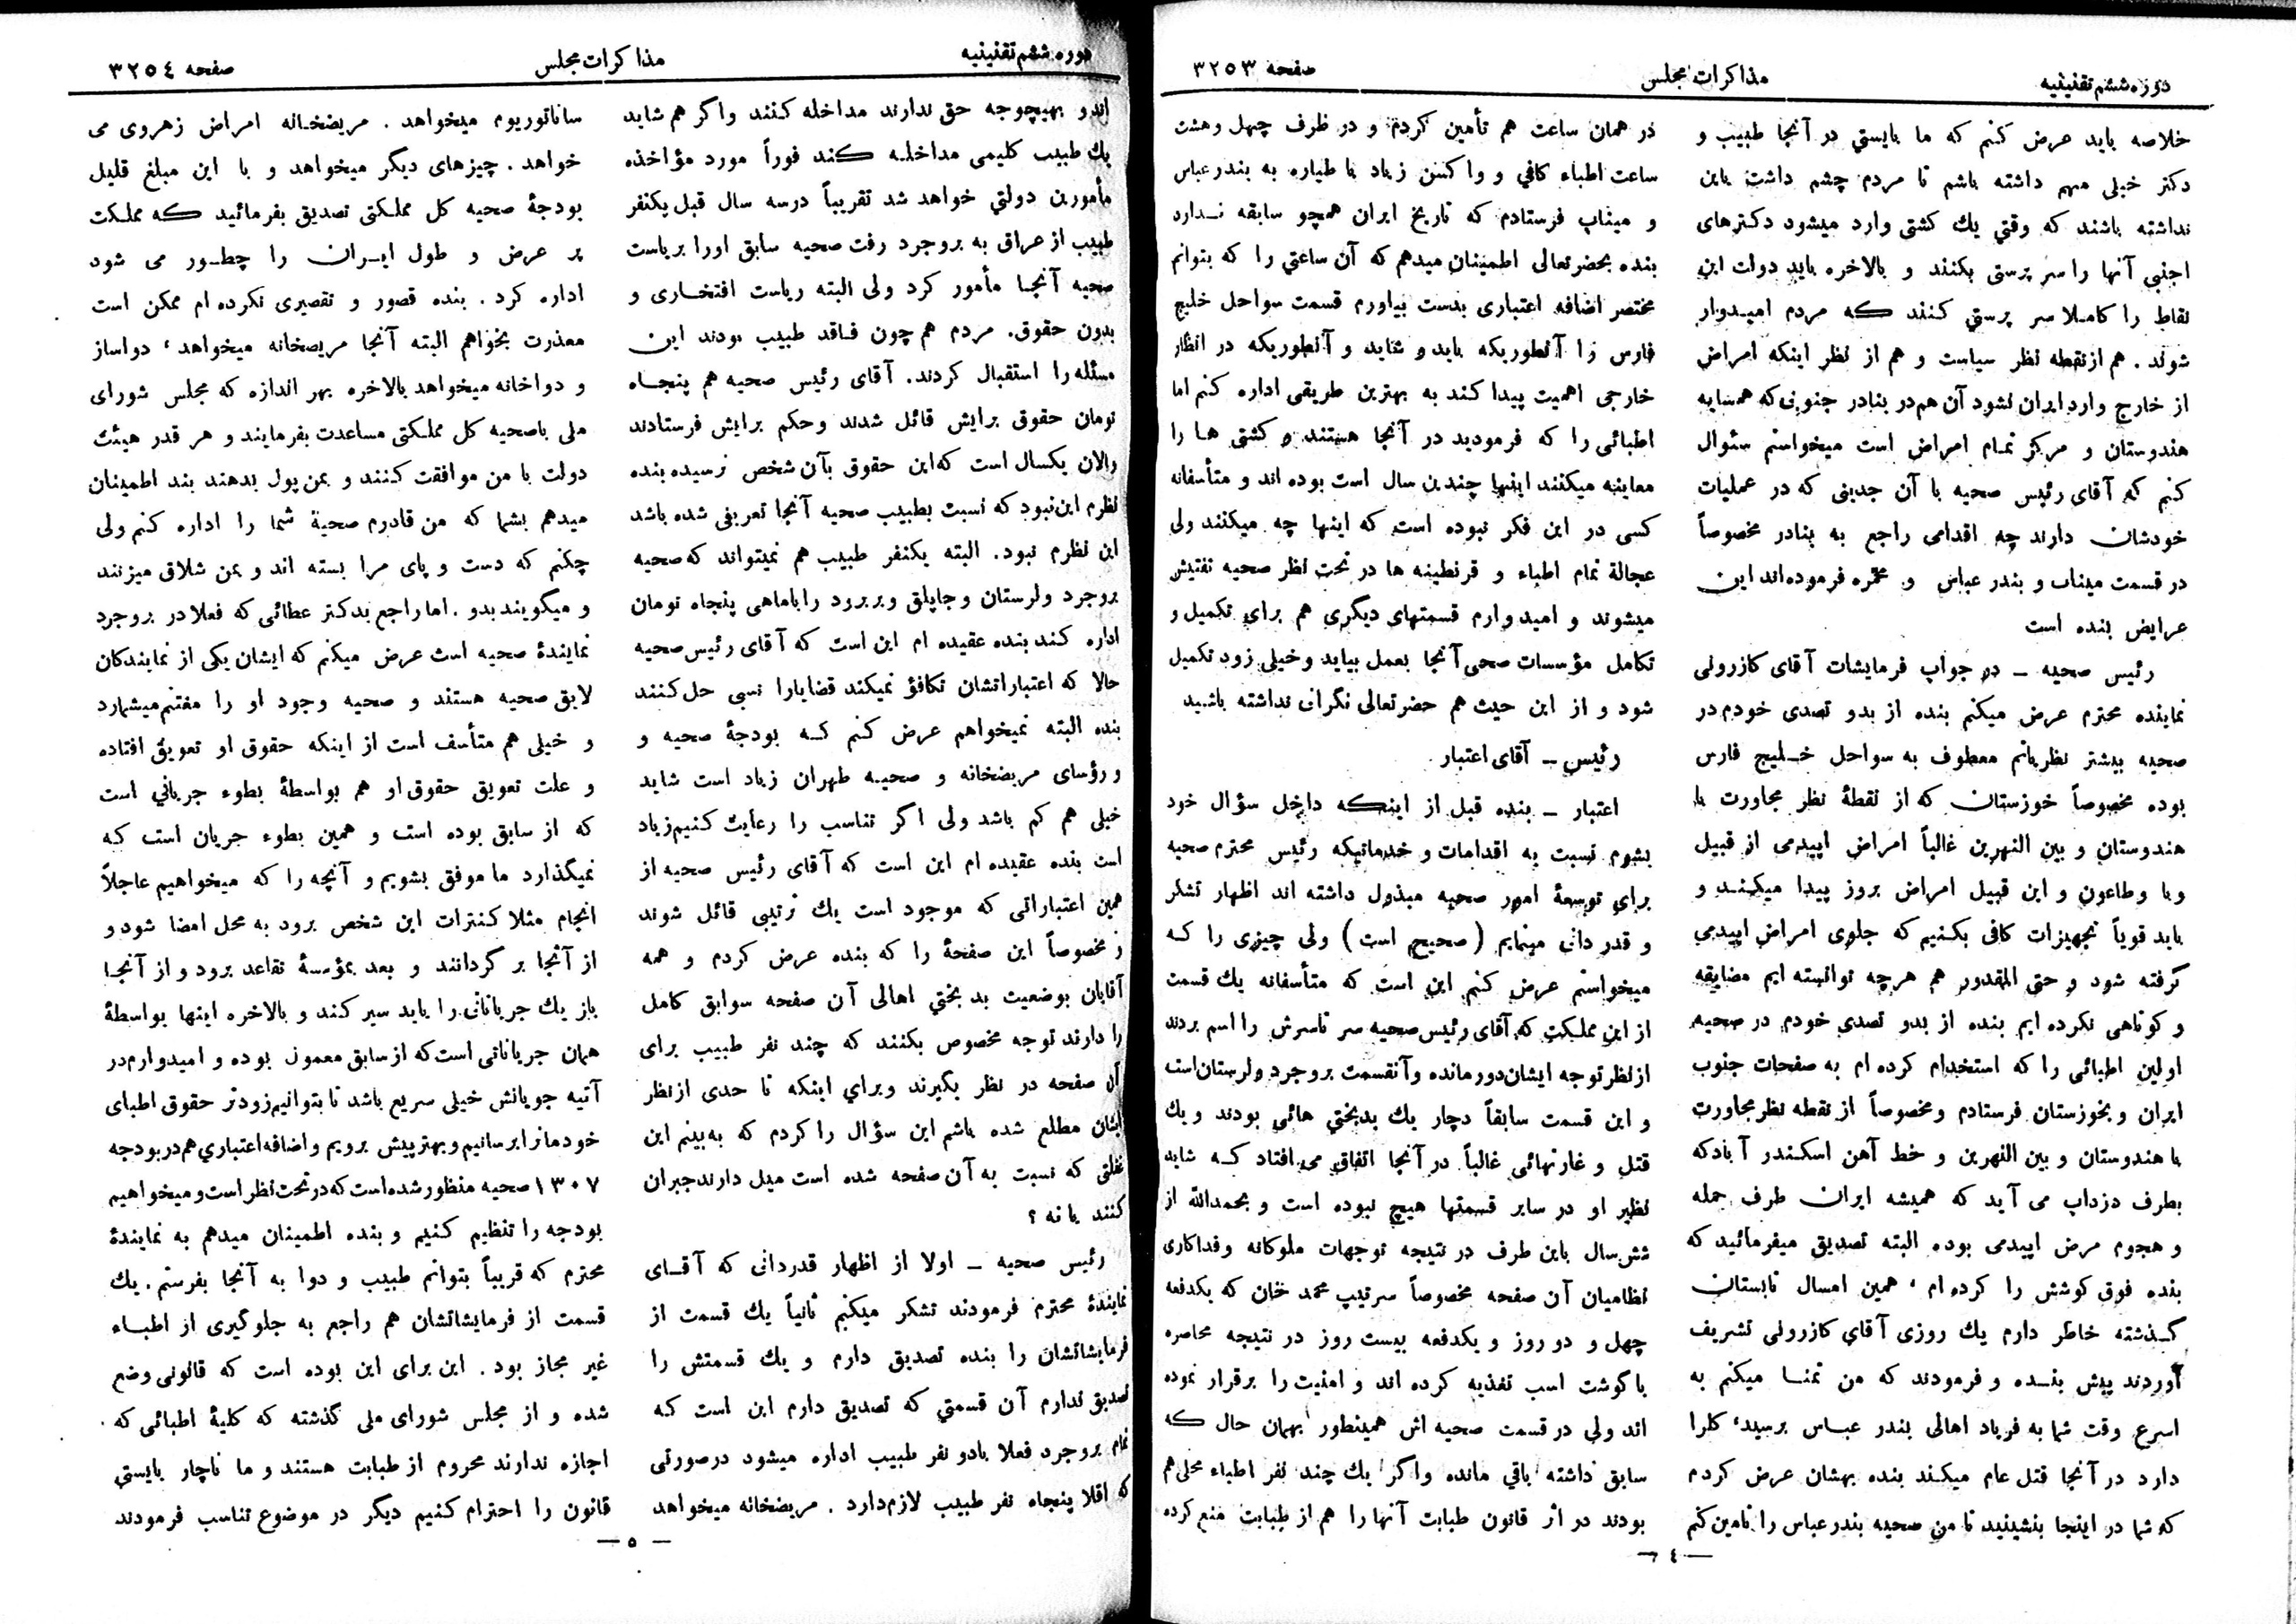 دوره ششم تقنینیه
مذاکرات مجلس
صفحه ۳۲۵۳
خلاصه باید عرض کنم که ما بایستي در آنجا طبیب و
دکتر خیلی مهم داشته باشم تا مردم چشم داشت باین
نداشته باشند که وقتي یك کشتی وارد میشود دکترهای
اجنبی آنها را سر پرستی بکنند و بالاخره باید دولت این
نقاط را کاملا سر پرستي کنند که مردم امیدوار
شوند . هم از نقطه نظر سیاست و هم از نظر اینکه امراض
از خارج وارد ایران نشود آن هم در بنادر جنوبی که همسایه
هندوستان و مرکز تمام امراض است میخواستم سئوال
کنم که آقای رئیس صحیه با آن جدیتی که در عملیات
خودشان دارند چه اقدامی راجع به بنادر مخصوصاً
در قسمت میناب و بندر عباس و محمره فرموده‌اند این
عرایض بنده است
رئیس صحیه ـ در جواب فرمایشات آقای کازرونی
نماینده محترم عرض میکنم بنده از بدو تصدی خودم در
صحیه بیشتر نظریاتم معطوف به سواحل خلیج فارس
بوده مخصوصاً خوزستان که از نقطهٔ نظر مجاورت با
هندوستان و بین النهرین غالباً امراض اپیدمی از قبیل
وبا و طاعون و این قبیل امراض بروز پیدا میکند و
باید قویاً تجهیزات کافی بکنیم که جلوی امراض اپیدمی
گرفته شود و حتی المقدور هم هرچه توانسته ایم مضایقه
و کوتاهی نکرده ایم بنده از بدو تصدی خودم در صحیه
اولین اطبائی را که استخدام کرده ام به صفحات جنوب
ایران و بخوزستان فرستادم و مخصوصاً از نقطه نظر مجاورت
با هندوستان و بین النهرین و خط آهن اسکندر آباد که
بطرف دزداب می آید که همیشه ایران طرف حمله
و هجوم مرض اپیدمی بوده البته تصدیق میفرمائید که
بنده فوق کوشش را کرده ام ، همین امسال تابستان
گذشته خاطر دارم یك روزی آقاي کازرونی تشریف
آوردند پیش بنده و فرمودند که من تمنا میکنم به
اسرع وقت شما به فریاد اهالی بندر عباس برسید، کلرا
دارد در آنجا قتل عام میکند بنده بهشان عرض کردم
که شما در اینجا بنشینید تا من صحیه بندر عباس را تامین کنم
در همان ساعت هم تأمین کردم و در ظرف چهل و هشت
ساعت اطباء کافي و واکسن زیاد با طیاره به بندر عباس
و میناب فرستادم که تاریخ ایران همچو سابقه ندارد
بنده بحضرتعالی اطمینان میدهم که آن ساعتي را که بتوانم
مختصر اضافه اعتباری بدست بیاورم قسمت سواحل خلیج
فارس را آنطوریکه باید و شاید و آنطوریکه در انظار
خارجی اهمیت پیدا کند به بهترین طریقی اداره کنم اما
اطبائی را که فرمودید در آنجا هستند و کشتی ها را
معاینه میکنند اینها چندین سال است بوده اند و متأسفانه
کسی در این فکر نبوده است که اینها چه میکنند ولی
عجالة تمام اطباء و قرنطینه ها در تحت نظر صحیه تفتیش
میشوند و امیدوارم قسمتهای دیگری هم برای تکمیل و
تکامل مؤسسات صحی آنجا بعمل بیاید و خیلی زود تکمیل
شود و از این حیث هم حضرتعالی نگران نداشته باشید
رئیس ـ آقای اعتبار
اعتبار ـ بنده قبل از اینکه داخل سؤال خود
بشوم نسبت به اقدامات و خدماتیکه رئیس محترم صحیه
برای توسعهٔ امور صحیه مبذول داشته اند اظهار تشکر
و قدر دانی مینمایم (صحیح است) ولی چیزی را که
میخواستم عرض کنم این است که متأسفانه یك قسمت
از این مملکت که آقای رئیس صحیه سر تاسرش را اسم بردند
از نظر توجه ایشان دور مانده و آنقسمت بروجرد و لرستان است
و این قسمت سابقاً دچار یك بدبختي هائی بودند و یك
قتل و غارتهائی غالباً در آنجا اتفاق می افتاد که شاید
نظیر او در سایر قسمتها هیچ نبوده است و بحمدالله از
شش سال باین طرف در نتیجه توجهات ملوکانه و فداکاری
نظامیان آن صفحه مخصوصاً سرتیپ محمد خان که یکدفعه
چهل و دو روز و یکدفعه بیست روز در نتیجه محاصره
با گوشت اسب تغذیه کرده اند و امنیت را برقرار نموده
اند ولی در قسمت صحیه اش همینطور بهمان حال که
سابق داشته باقي مانده و اگر یك چند نفر اطباء محلی هم
بودند در اثر قانون طبابت آنها را هم از طبابت منع کرده
— ٤ —
دوره ششم تقنینیه
مذاکرات مجلس
صفحه ۳۲۵٤
اند و بهیچوجه حق ندارند مداخله کنند و اگر هم شاید
یك طبیب کلیمی مداخله کند فوراً مورد مؤاخذه
مأمورین دولتي خواهد شد تقریباً در سه سال قبل یکنفر
طبیب از عراق به بروجرد رفت صحیه سابق اورا بریاست
صحیه آنجا مأمور کرد ولی البته ریاست افتخاری و
بدون حقوق. مردم هم چون فاقد طبیب بودند این
مسئله را استقبال کردند. آقای رئیس صحیه هم پنجاه
تومان حقوق برایش قائل شدند و حکم برایش فرستادند
والان یکسال است که این حقوق بآن شخص نرسیده بنده
نظرم این نبود که نسبت بطبیب صحیه آنجا تعریفی شده باشد
این نظرم نبود. البته یکنفر طبیب هم نمیتواند که صحیه
بروجرد و لرستان و جاپلق و بربرود را با ماهی پنجاه تومان
اداره کند بنده عقیده ام این است که آقای رئیس صحیه
حالا که اعتباراتشان تکافؤ نمیکند قضایا را نسبی حل کنند
بنده البته نمیخواهم عرض کنم که بودجهٔ صحیه و
و رؤسای مریضخانه و صحیه طهران زیاد است شاید
خیلی هم کم باشد ولی اگر تناسب را رعایت کنیم زیاد
است بنده عقیده ام این است که آقای رئیس صحیه از
همین اعتباراتی که موجود است یك ترتیبی قائل شوند
و مخصوصاً این صفحهٔ را که بنده عرض کردم و همه
آقایان بوضعیت بد بختي اهالی آن صفحه سوابق کامل
را دارند توجه مخصوص بکنند که چند نفر طبیب برای
آن صفحه در نظر بگیرند و برای اینکه تا حدی از نظر
ایشان مطلع شده باشم این سؤال را کردم که به بینم این
غفلتی که نسبت به آن صفحه شده است میل دارند جبران
کنند یا نه ؟
رئیس صحیه ـ اولا از اظهار قدردانی که آقای
نمایندهٔ محترم فرمودند تشکر میکنم ثانیاً یك قسمت از
فرمایشاتشان را بنده تصدیق دارم و یك قسمتش را
تصدیق ندارم آن قسمتی که تصدیق دارم این است که
تمام بروجرد فعلا با دو نفر طبیب اداره میشود در صورتی
که اقلا پنجاه نفر طبیب لازم دارد . مریضخانه میخواهد
ساناتوریوم میخواهد . مریضخانه امراض زهروی می
خواهد . چیزهای دیگر میخواهد و با این مبلغ قلیل
بودجهٔ صحیه کل مملکتی تصدیق بفرمائید که مملکت
پر عرض و طول ایران را چطور می شود
اداره کرد . بنده قصور و تقصیری نکرده ام ممکن است
معذرت بخواهم البته آنجا مریضخانه میخواهد ، دواساز
و دواخانه میخواهد بالاخره بهر اندازه که مجلس شورای
ملی باصحیه کل مملکتی مساعدت بفرمایند و هر قدر هیئت
دولت با من موافقت کنند و بمن پول بدهند بند اطمینان
میدهم بشما که من قادرم صحیهٔ شما را اداره کنم ولی
چکنم که دست و پای مرا بسته اند و بمن شلاق میزنند
و میگویند بدو . اما راجع بدکتر عطائی که فعلا در بروجرد
نمایندهٔ صحیه است عرض میکنم که ایشان یکی از نمایندگان
لایق صحیه هستند و صحیه وجود او را مغتنم میشمارد
و خیلی هم متأسف است از اینکه حقوق او تعویق افتاده
و علت تعویق حقوق او هم بواسطهٔ بطوء جریاني است
که از سابق بوده است و همین بطوء جریان است که
نمیگذارد ما موفق بشویم و آنچه را که میخواهیم عاجلاً
انجام مثلا کنترات این شخص برود به محل امضا شود و
از آنجا بر گردانند و بعد بمؤسسهٔ تقاعد برود و از آنجا
باز یك جریاناتی را باید سیر کند و بالاخره اینها بواسطهٔ
همان جریاناتی است که از سابق معمول بوده و امیدوارم در
آتیه جویانش خیلی سریع باشد تا بتوانیم زودتر حقوق اطبای
خودمانرا برسانیم و بهتر پیش برویم و اضافه اعتباری هم در بودجه
۱۳۰۷ صحیه منظور شده است که در تحت نظر است و میخواهیم
بودجه را تنظیم کنیم و بنده اطمینان میدهم به نمایندهٔ
محترم که قریباً بتوانم طبیب و دوا به آنجا بفرستم . یك
قسمت از فرمایشاتشان هم راجع به جلوگیری از اطباء
غیر مجاز بود . این برای این بوده است که قانونی وضع
شده و از مجلس شورای ملی گذشته که کلیهٔ اطبائی که
اجازه ندارند محروم از طبابت هستند و ما ناچار بایستي
قانون را احترام کنیم دیگر در موضوع تناسب فرمودند
— ٥ —